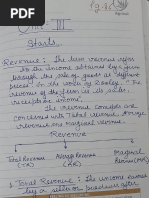 Unit - III
Starts
Revenue : The term revenue refers
to the income obtained by a firm
through the sale of goods at different
prices. In the words of Dooley "The
revenue of the firm is its sales
receipts or income
The revenue concepts are
concerned with Total revenue, Average
revenue and Marginal revenue.
Revenue
Total Revenue Average Revenue Marginal
(TR) (AR) Revenue (MR)
1. Total Revenue : The income earned
by a seller